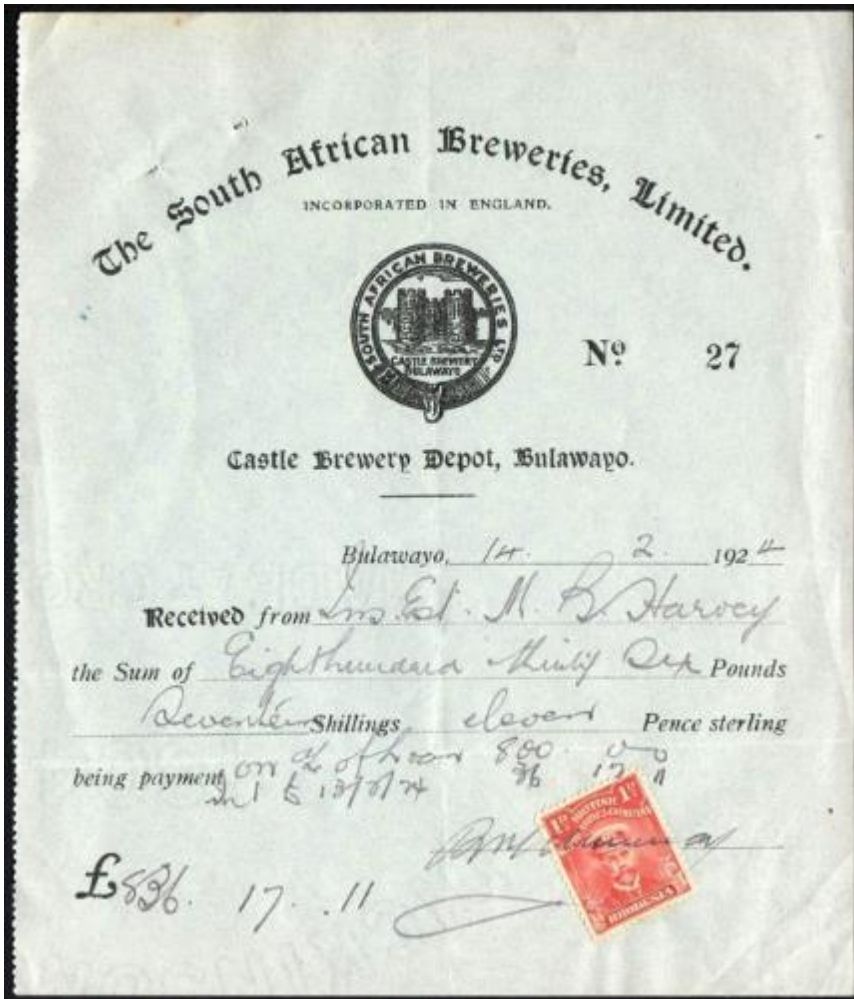 The South African Breweries, Limited.
INCORPORATED IN ENGLAND.
SOUTH AFRICAN BREWERIES LTD
CASTLE BREWERY
BULAWAYO
Nº 27
Castle Brewery Depot, Bulawayo.
Bulawayo, 14. 2. 1924
Received from Ins. Est. M. B. Harvey
the Sum of Eight hundard thirty six Pounds
Seventeen Shillings eleven Pence sterling
being payment on of loan 800
Int 36 17 11
1D 1D
RHODESIA
£ 836. 17. .11